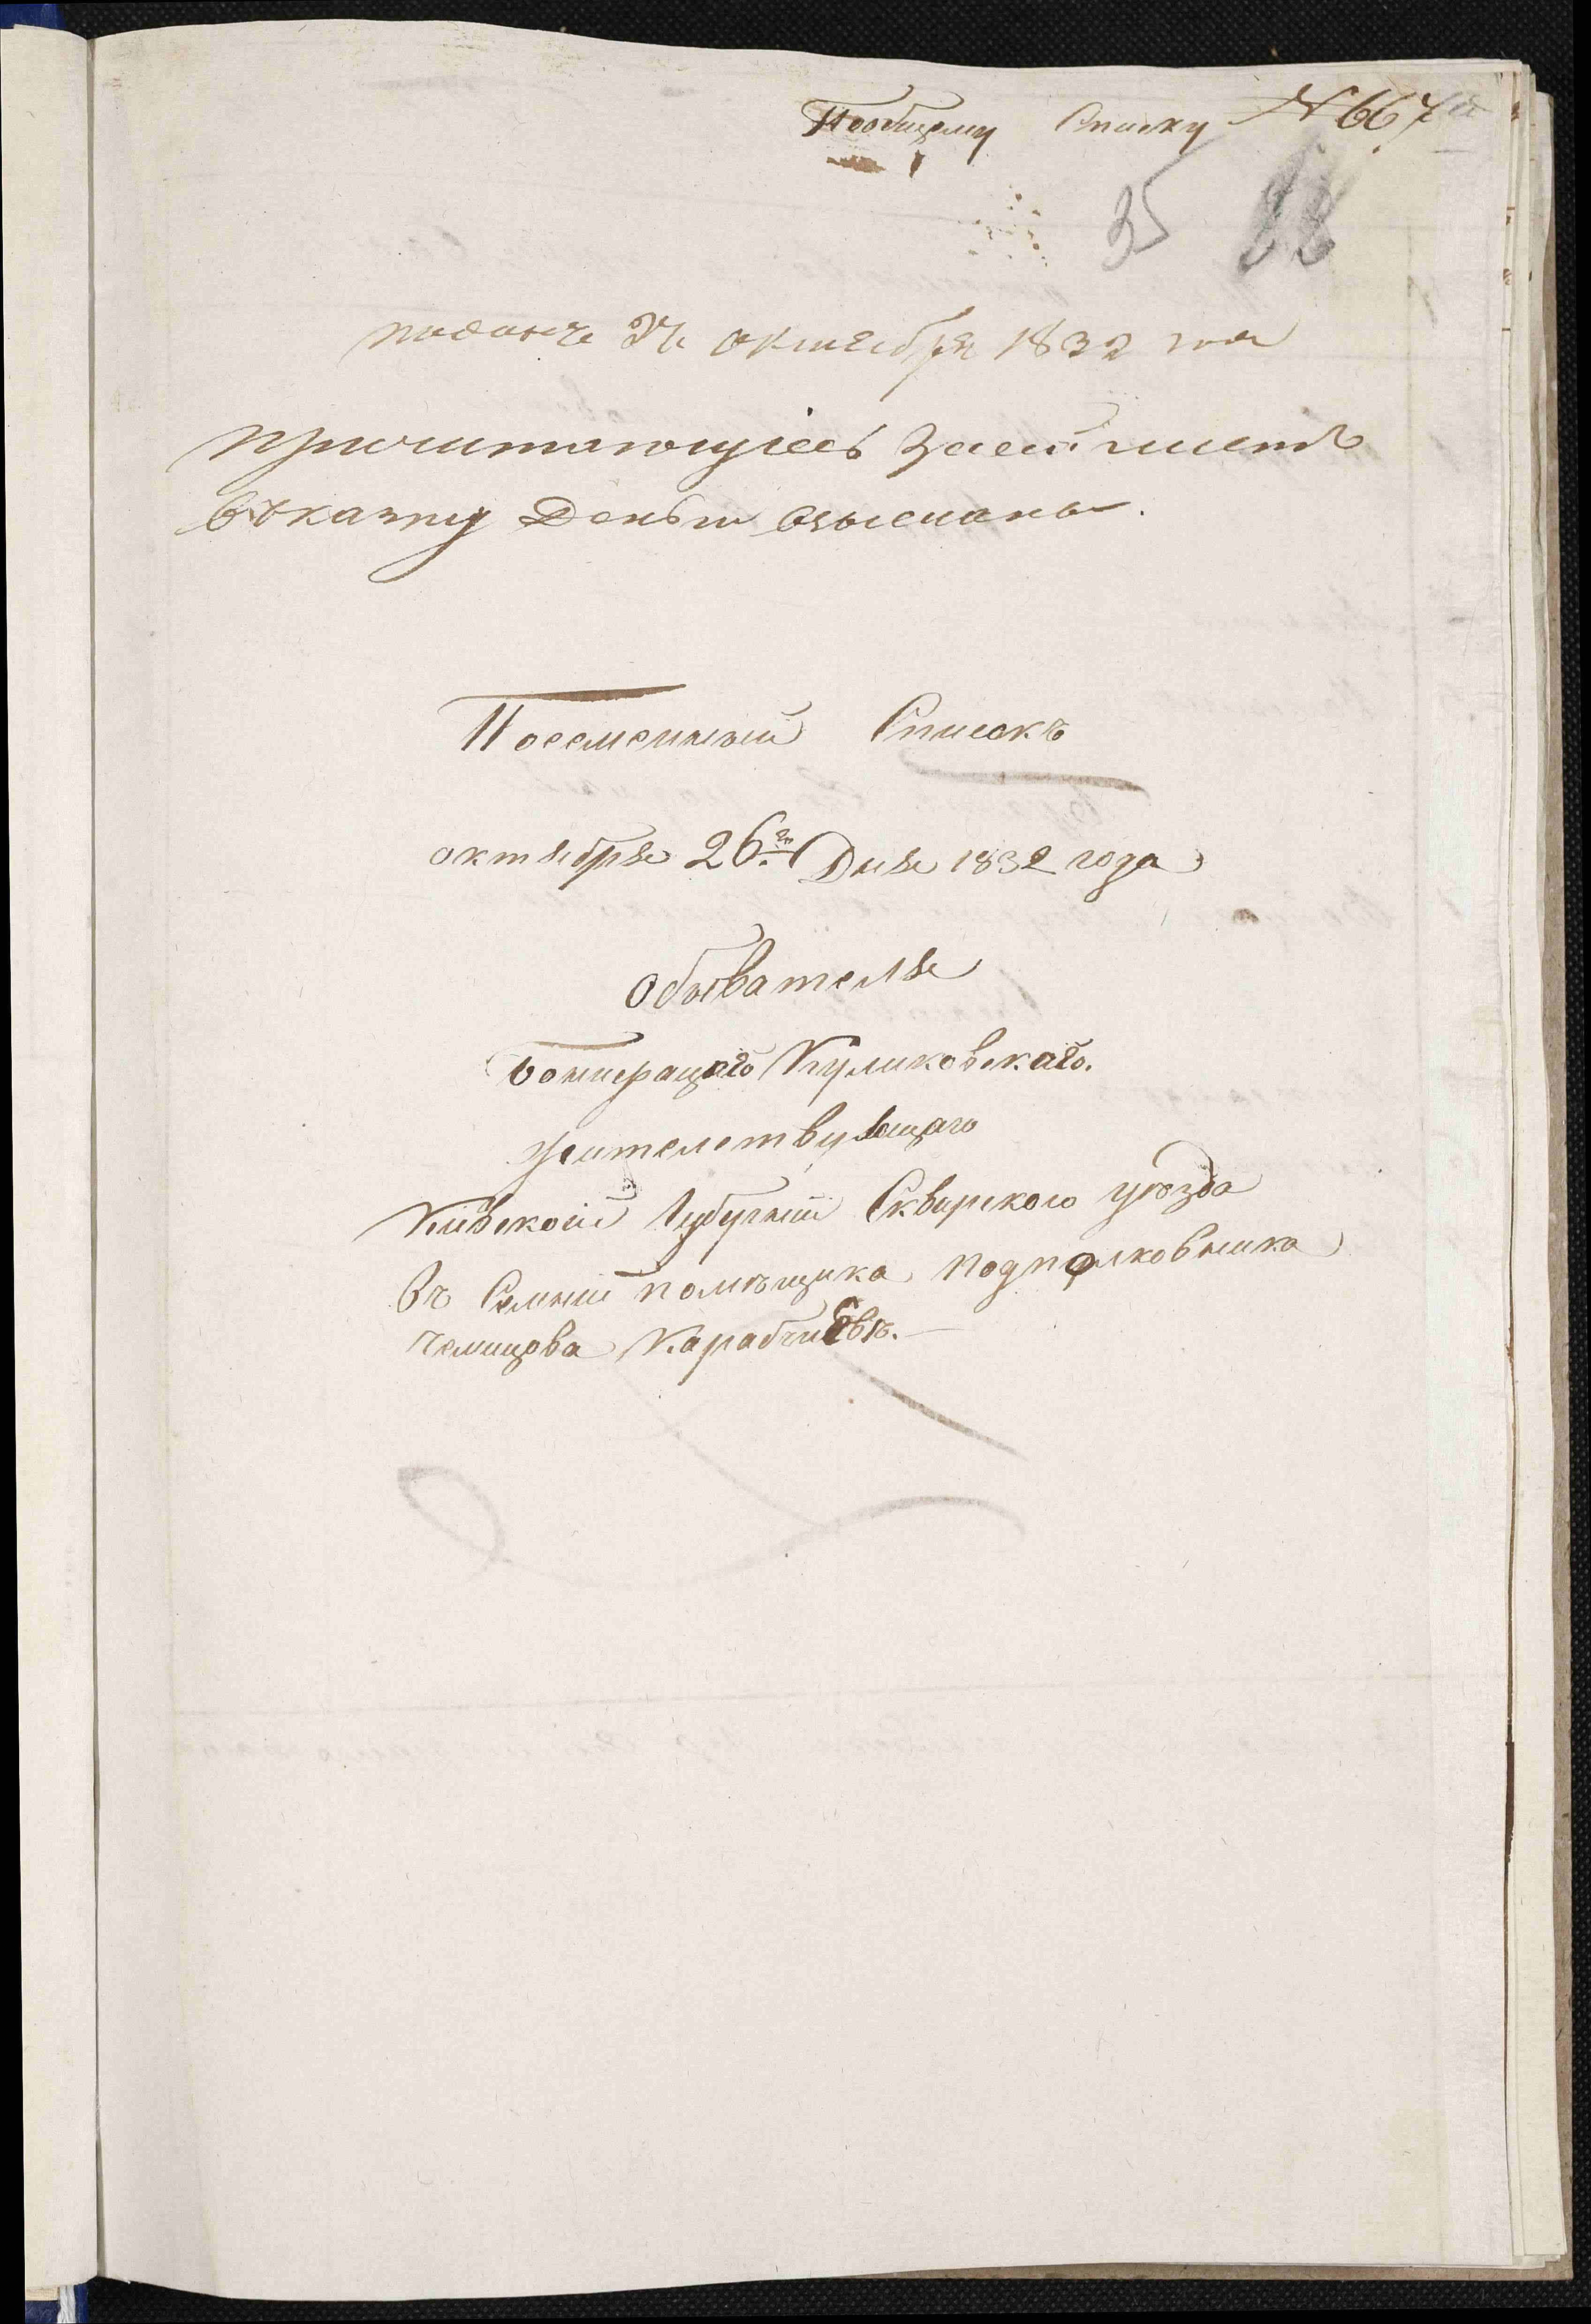 Пообщему Списку № 667й
35 88
поданъ 27 октября 1832 года
причитающуіесь засей листъ
въказну Деньги взысканы.
Посеменный Списокъ
октября 26го Дня 1832 года
обывателя
Бонифацаго Куликовскаго.
жителствующаго
Кіивской Губерніи Сквирскаго уезда
въ Селеніи помѣщика подполковника
Чемицова Карабчиѣвѣ.